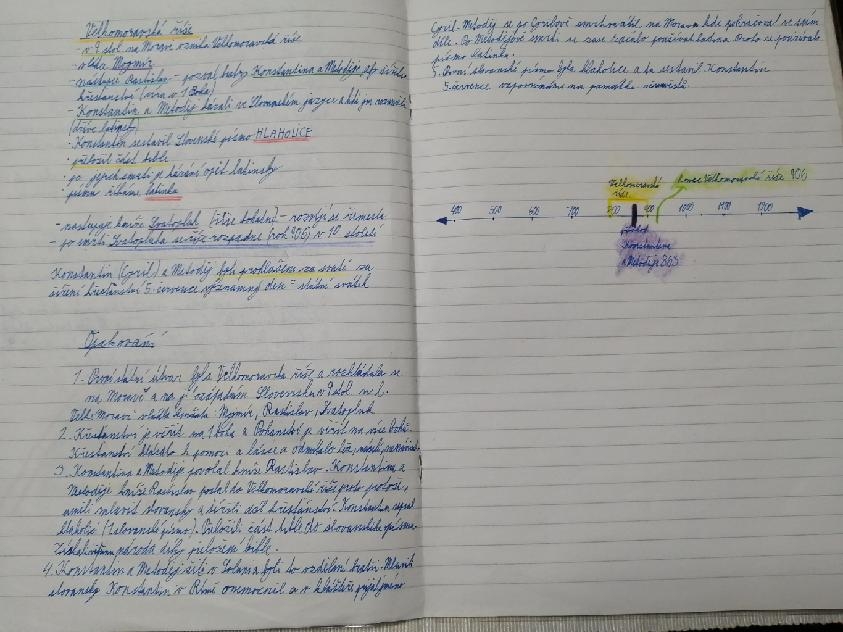 Velkomoravská říše
- v 9 stol. na Moravě vznikla Velkomoravská říše
- vládce Mojmír
- nástupce Rastislav - pozval bratry Konstantina a Metoděje aby šířili
křesťanství (víra v 1 Boha)
- Konstantin a Metoděj kázali ve Slovanském jazyce a lidé jim rozuměli
(dříve latinsky)
- Konstantin sestavil Slovenské písmo HLAHOLICE
- přeložil část bible
- po jejich smrti je kázání opět latinsky
- písmo
latinka
- nastupuje kníže Svatopluk
- rozvíjí se řemesla
- po smrti Svatopluka se říše rozpadne (rok 906) v 10 století
Konstantin (Cyril) a Metoděj byli prohlášeni za svaté za
šíření křesťanství 5. července významný den = státní svátek
Opakování
1. První státní útvar byla Velkomoravská říše a rozkládala se
na Moravě a na západním Slovensku v 9 stol. n. l.
Velké Moravě vládli knížata: Mojmír, Rastislav, Svatopluk
2. Křesťanství je věřit na 1 Boha a Pohanství je věřit na více Bohů.
Křesťanství hlásalo k pomoci a lásce a odmítalo lež, násilí,
3. Konstantina a Metoděje povolal kníže Rastislav. Konstantina a
Metoděje kníže Rastislav poslal do Velkomoravské říše proto protože,
uměli mluvit slovansky a šířili dál křesťanství. Konstantin sepsal
hlaholici (Slovanské písmo). Přeložili část bible do slovanského
národa díky přeložení bible.
4. Konstantin a Metoděj žili v Soluni byli to vzdělaní bratři. Mluvili
slovansky Konstantin v Římě onemocněl a v klášteře přijal jméno
Cyril. Metoděj se po Cyrilově smrti vrátil na Moravu kde pokračoval ve svém
díle. Po Metodějově smrti se zase začalo používat latina a používalo
písmo latinka.
5. První slovanské písmo byla hlaholice a tu sestavil Konstantin
5. července vzpomínáme na památku
Velkomoravská
říše
konec Velkomoravské říše 906
400 500 600 700 800 900 1000 1100 1200
příchod
Konstantina
a Metoděje 863